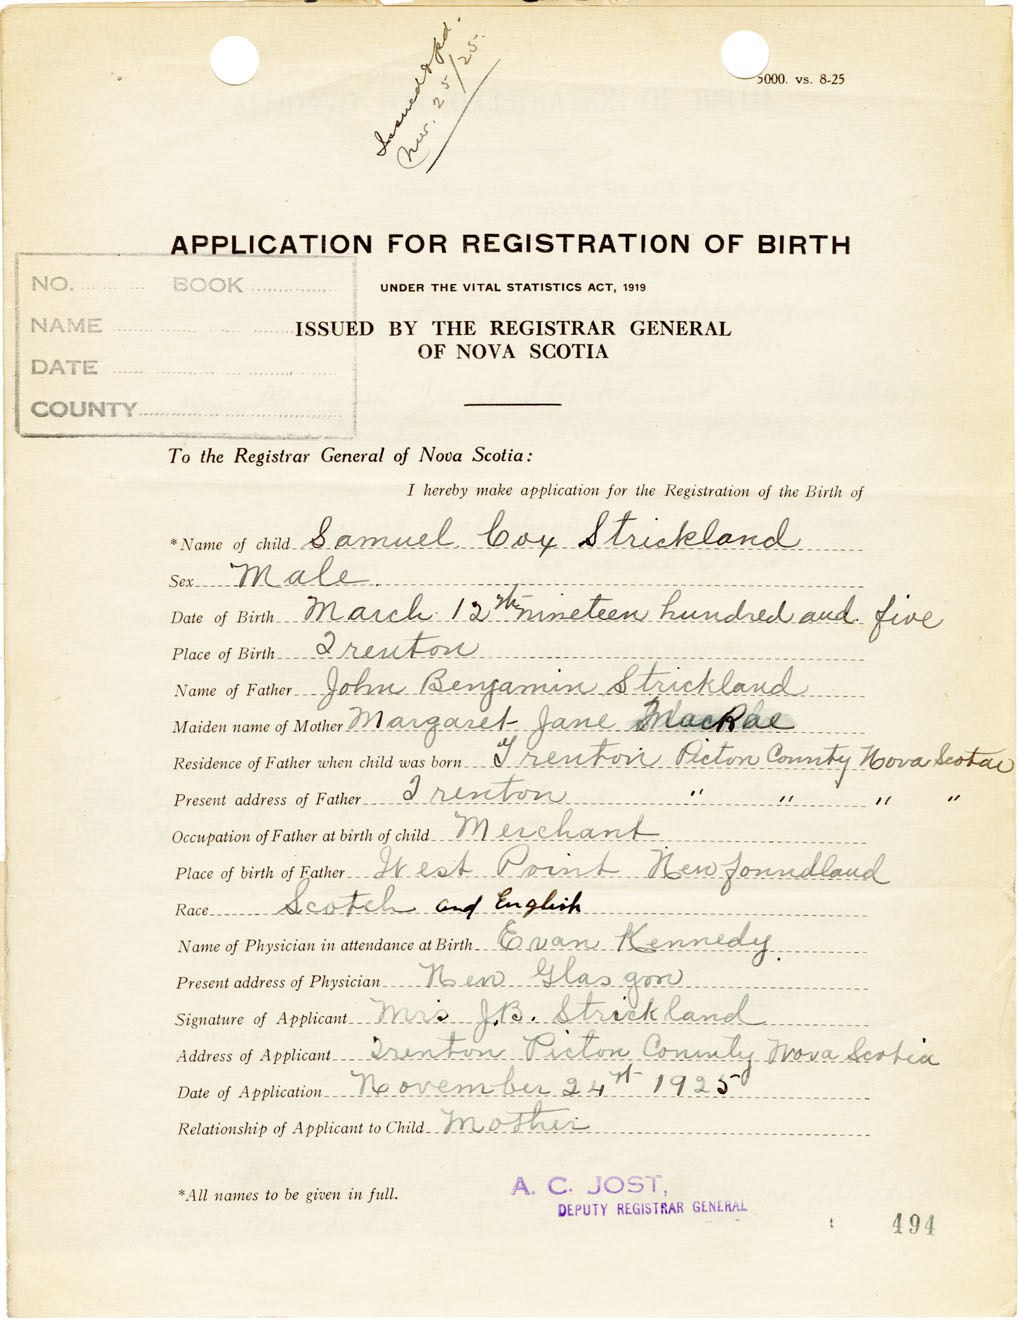 Issued & pd.
Nov. 25/25.
5000. vs. 8-25
APPLICATION FOR REGISTRATION OF BIRTH
UNDER THE VITAL STATISTICS ACT, 1919
ISSUED BY THE REGISTRAR GENERAL
OF NOVA SCOTIA
NO. BOOK
NAME
DATE
COUNTY
To the Registrar General of Nova Scotia:
I hereby make application for the Registration of the Birth of
*Name of child Samuel Coxy Strickland
Sex Male
Date of Birth March 12th nineteen hundred and five
Place of Birth Trenton
Name of Father John Benjamin Strickland
Maiden name of Mother Margaret Jane MacRae
Residence of Father when child was born Trenton Picton County Nova Scotia
Present address of Father Trenton " " " "
Occupation of Father at birth of child Merchant
Place of birth of Father West Point Newfoundland
Race Scotch and English
Name of Physician in attendance at Birth Evan Kennedy.
Present address of Physician New Glasgow
Signature of Applicant Mrs J.B. Strickland
Address of Applicant Trenton Picton County Nova Scotia
Date of Application November 24th 1925
Relationship of Applicant to Child Mother
*All names to be given in full.
A. C. JOST,
DEPUTY REGISTRAR GENERAL
494